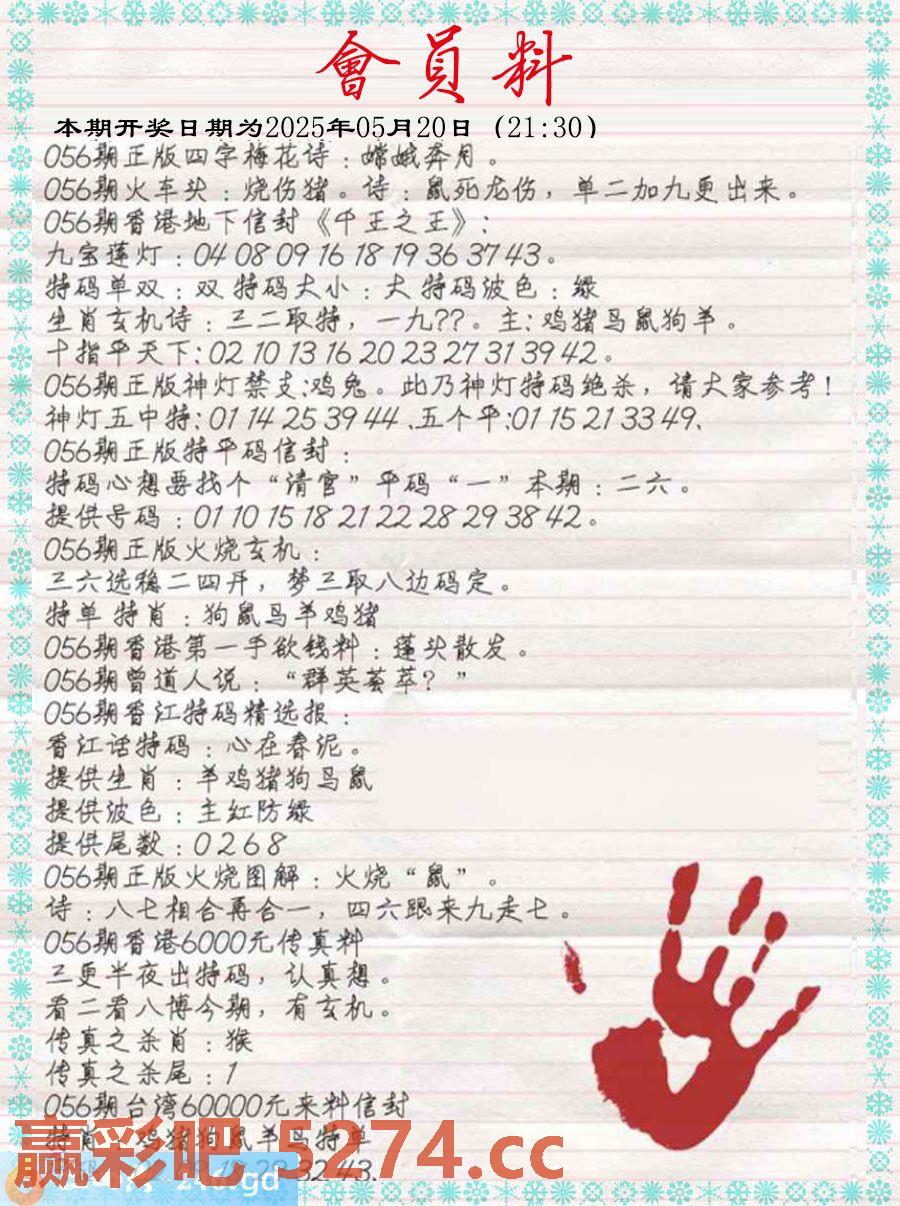 會員料
本期开奖日期为2025年05月20日（21:30）
056期正版四字梅花诗：嫦娥奔月。
056期火车头：烧伤猪。诗：鼠死龙伤，单二加九更出来。
056期香港地下信封《千王之王》：
九宝莲灯：04 08 09 16 18 19 36 37 43。
特码单双：双 特码大小：大 特码波色：绿
生肖玄机诗：三二取特，一九??。主：鸡猪马鼠狗羊。
十指平天下：02 10 13 16 20 23 27 31 39 42。
056期正版神灯禁支：鸡兔。此乃神灯特码绝杀，请大家参考！
神灯五中特：01 14 25 39 44 .五个平：01 15 21 33 49.
056期正版特平码信封：
特码心想要找个“清官”平码“一”本期：二六。
提供号码：01 10 15 18 21 22 28 29 38 42。
056期正版火烧玄机：
三六选稳二四开，梦三取八边码定。
特单 特肖：狗鼠马羊鸡猪
056期香港第一手欲钱料：蓬头散发。
056期曾道人说：“群英荟萃？”
056期香江特码精选报：
香江话特码：心在春泥。
提供生肖：羊鸡猪狗马鼠
提供波色：主红防绿
提供尾数：0 2 6 8
056期正版火烧图解：火烧“鼠”。
诗：八七相合再合一，四六跟来九走七。
056期香港6000元传真料
三更半夜出特码，认真想。
看二看八博今期，有玄机。
传真之杀肖：猴
传真之杀尾：1
056期台湾60000元来料信封
特肖：鸡猪狗鼠羊马特单
32 43.
赢彩吧.5274.cc